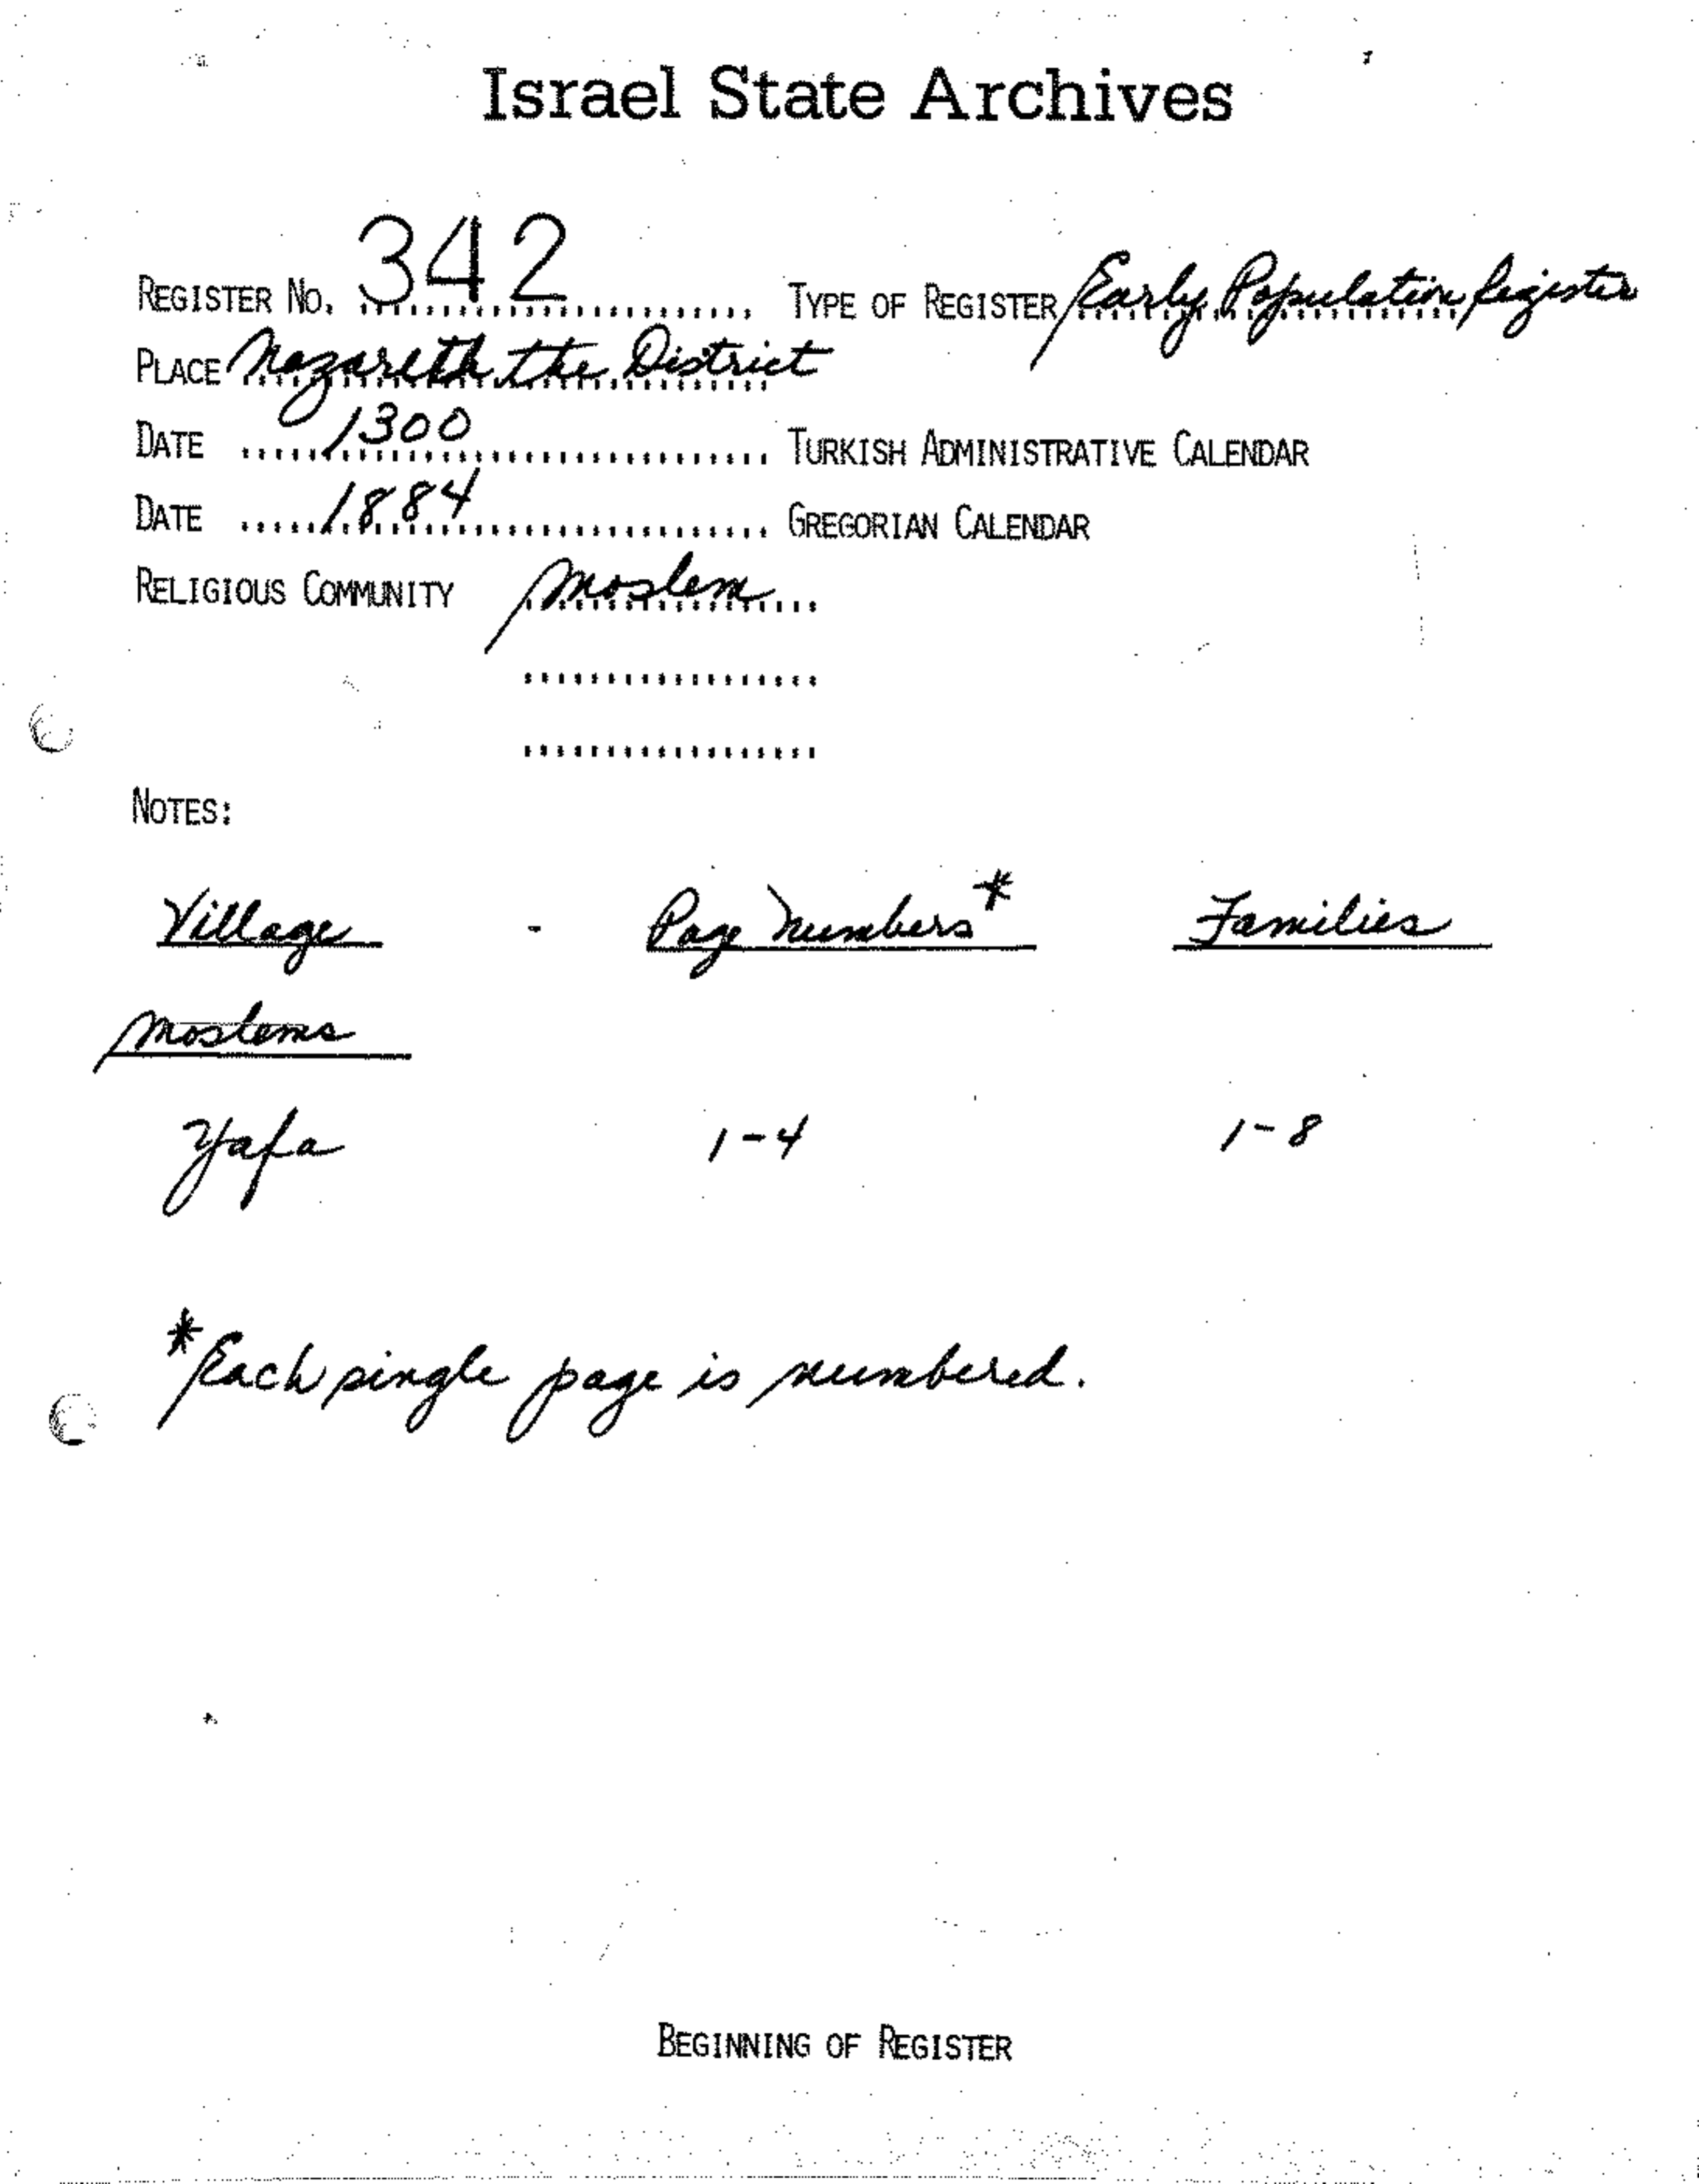 Israel State Archives
REGISTER NO. 342 TYPE OF REGISTER Early Population Register
PLACE Nazareth the District
DATE 1300 TURKISH ADMINISTRATIVE CALENDAR
DATE 1884 GREGORIAN CALENDAR
RELIGIOUS COMMUNITY Moslem
NOTES:
Village - Page Numbers* Families
Moslems
Yafa 1-4 1-8
*Each single page is numbered.
BEGINNING OF REGISTER